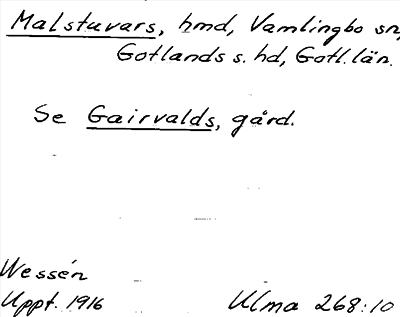 Malstuvars, hmd, Vamlingbo sn,
Gotlands s. hd, Gotl. län.
Se Gairvalds, gård.
Wessén
Uppt. 1916
Ulma 268:10